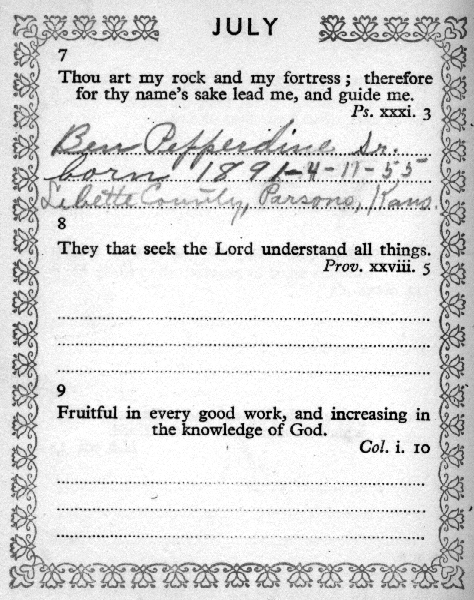 JULY
7
Thou art my rock and my fortress; therefore
for thy name's sake lead me, and guide me.
Ps. xxxi. 3
Ben Pepperdine Sr.
born 1891-4-11-55
Lebette County, Parsons, Kans.
8
They that seek the Lord understand all things.
Prov. xxviii. 5
9
Fruitful in every good work, and increasing in
the knowledge of God.
Col. i. 10